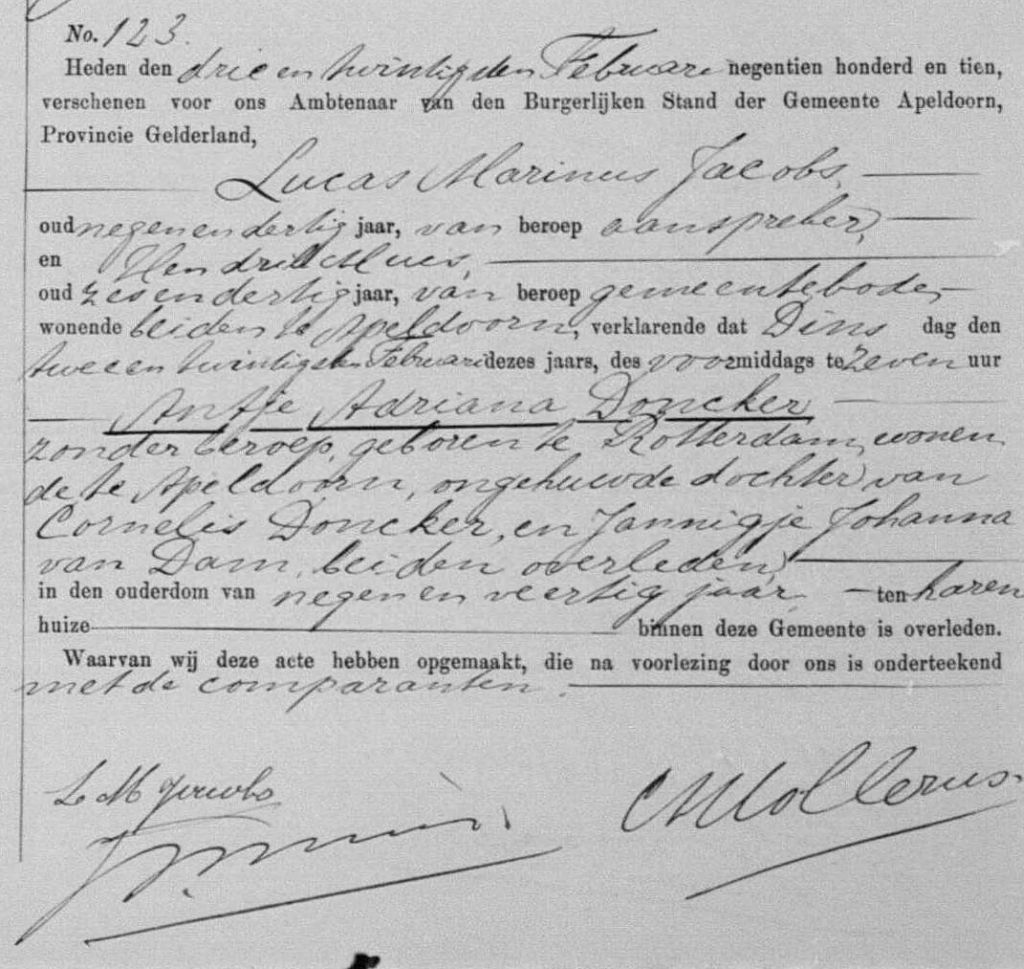 No. 123.
Heden den drie en twintigsten Februari negentien honderd en tien,
verschenen voor ons Ambtenaar van den Burgerlijken Stand der Gemeente Apeldoorn,
Provincie Gelderland,
Lucas Marinus Jacobs,
oud negenendertig jaar, van beroep aanspreker,
en Hendrik Muis,
oud zesendertig jaar, van beroep gemeentebode,
wonende beiden te Apeldoorn, verklarende dat Dinsdag den
tweeen twintigsten Februari dezes jaars, des voormiddags te zeven uur
Antje Adriana Doncker
zonder beroep, geboren te Rotterdam, wonen
de te Apeldoorn, ongehuwde dochter van
Cornelis Doncker, en Jannigje Johanna
van Dam, beiden overleden,
in den ouderdom van negen en veertig jaar, ten haren
huize binnen deze Gemeente is overleden.
Waarvan wij deze acte hebben opgemaakt, die na voorlezing door ons is onderteekend
met de comparanten.
L M Jacobs
CMollerus.